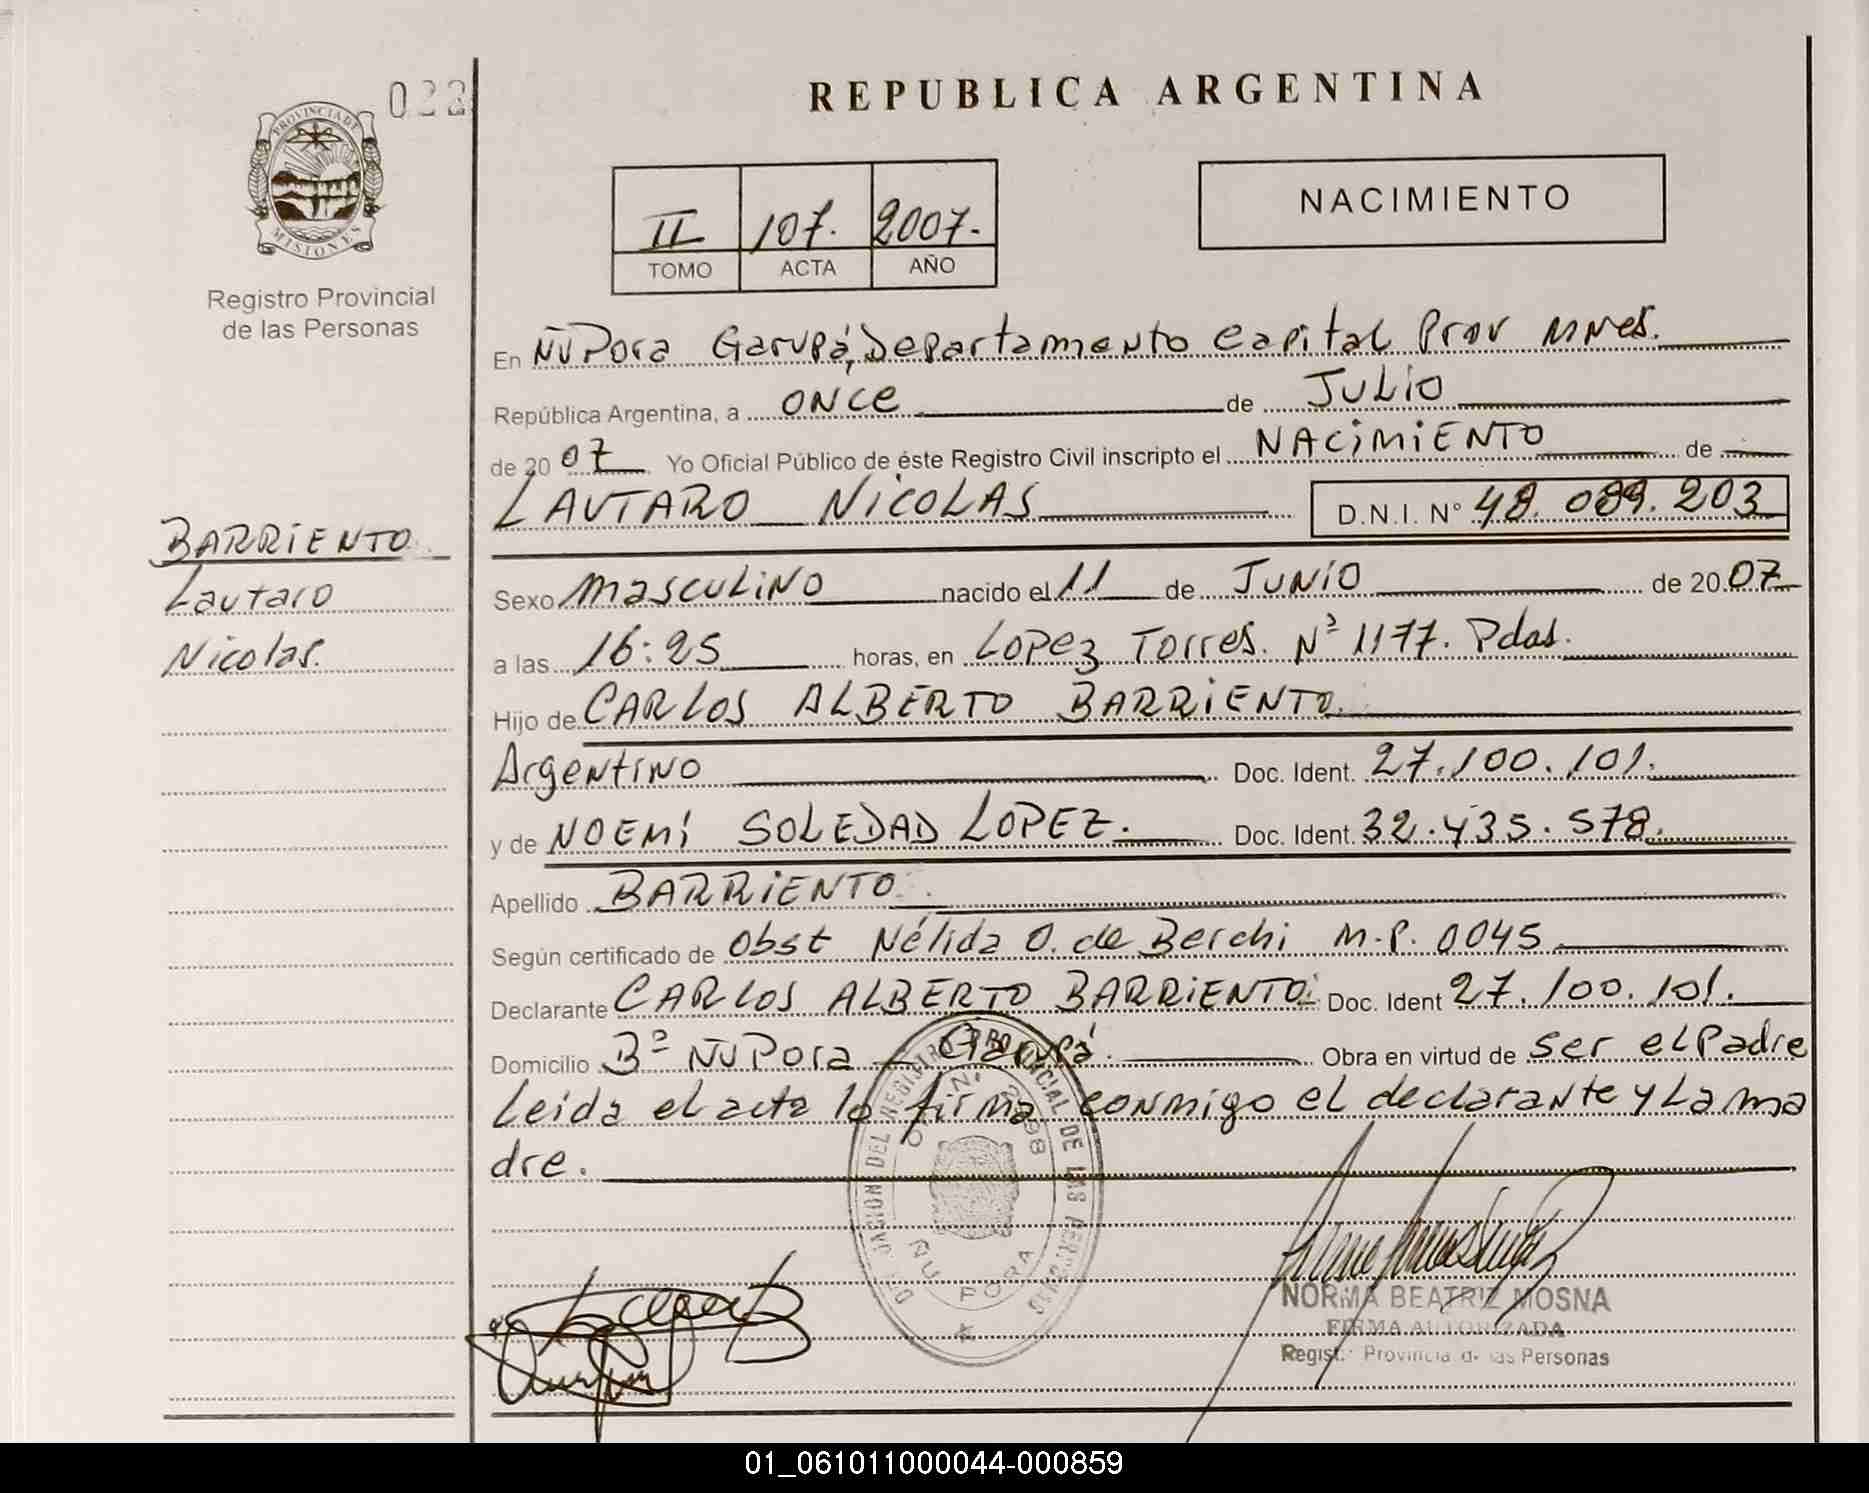 022
PROVINCIA DE
MISIONES
Registro Provincial
de las Personas
REPUBLICA ARGENTINA
II 107. 2007.
TOMO ACTA AÑO
NACIMIENTO
En ÑuPora Garupá, Departamento Capital Prov Mnes.
República Argentina, a once de Julio
de 2007 Yo Oficial Público de éste Registro Civil inscripto el NACIMIENTO de
LAUTARO NICOLAS D.N.I. N° 48.089.203
BARRIENTO
Lautaro
Nicolas.
Sexo masculino nacido el 11 de JUNIO de 2007
a las 16:25 horas, en Lopez Torres. Nº 1177. Pdas.
Hijo de CARLOS ALBERTO BARRIENTO.
Argentino Doc. Ident. 27.100.101.
y de NOEMI SOLEDAD LOPEZ. Doc. Ident. 32.435.578.
Apellido BARRIENTO
Según certificado de Obst Nélida O. de Berchi M.P. 0045
Declarante CARLOS ALBERTO BARRIENTO Doc. Ident 27.100.101.
Domicilio Bº ÑuPora - Garupá. Obra en virtud de ser el Padre
Leida el acta la firma conmigo el declarante y La ma
dre.
REGISTRO PROVINCIAL DE LAS PERSONAS
ÑU PORA
NORMA BEATRIZ MOSNA
FIRMA AUTORIZADA
Regist. Provincia de las Personas
01_061011000044-000859